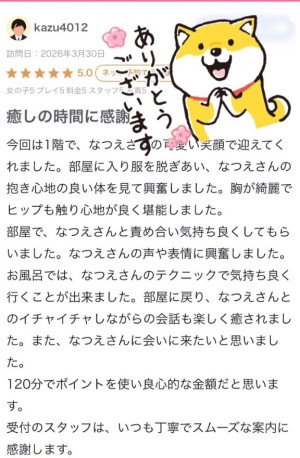 kazu4012
訪問日：2026年3月30日
★★★★★ 5.0
女の子5 プレイ5 料金5 スタッフ5
ありがとう
ございます
癒しの時間に感謝
今回は1階で、なつえさんの可愛い笑顔で迎えてく
れました。部屋に入り服を脱ぎあい、なつえさんの
抱き心地の良い体を見て興奮しました。胸が綺麗で
ヒップも触り心地が良く堪能しました。
部屋で、なつえさんと責め合い気持ち良くしてもら
いました。なつえさんの声や表情に興奮しました。
お風呂では、なつえさんのテクニックで気持ち良く
行くことが出来ました。部屋に戻り、なつえさんと
のイチャイチャしながらの会話も楽しく癒されまし
た。また、なつえさんに会いに来たいと思いまし
た。
120分でポイントを使い良心的な金額だと思いま
す。
受付のスタッフは、いつも丁寧でスムーズな案内に
感謝します。